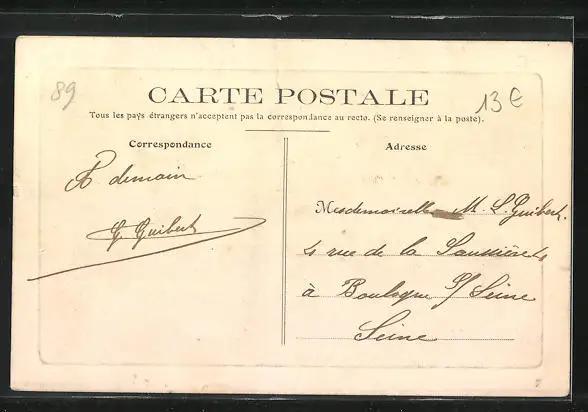 89
13 €
CARTE POSTALE
Tous les pays étrangers n'acceptent pas la correspondance au recto. (Se renseigner à la poste).
Correspondance
Adresse
A demain
G Guibert
Mesdemoiselles M. L. Guibert.
4 rue de la Saussière
à Boulogne S/ Seine
Seine